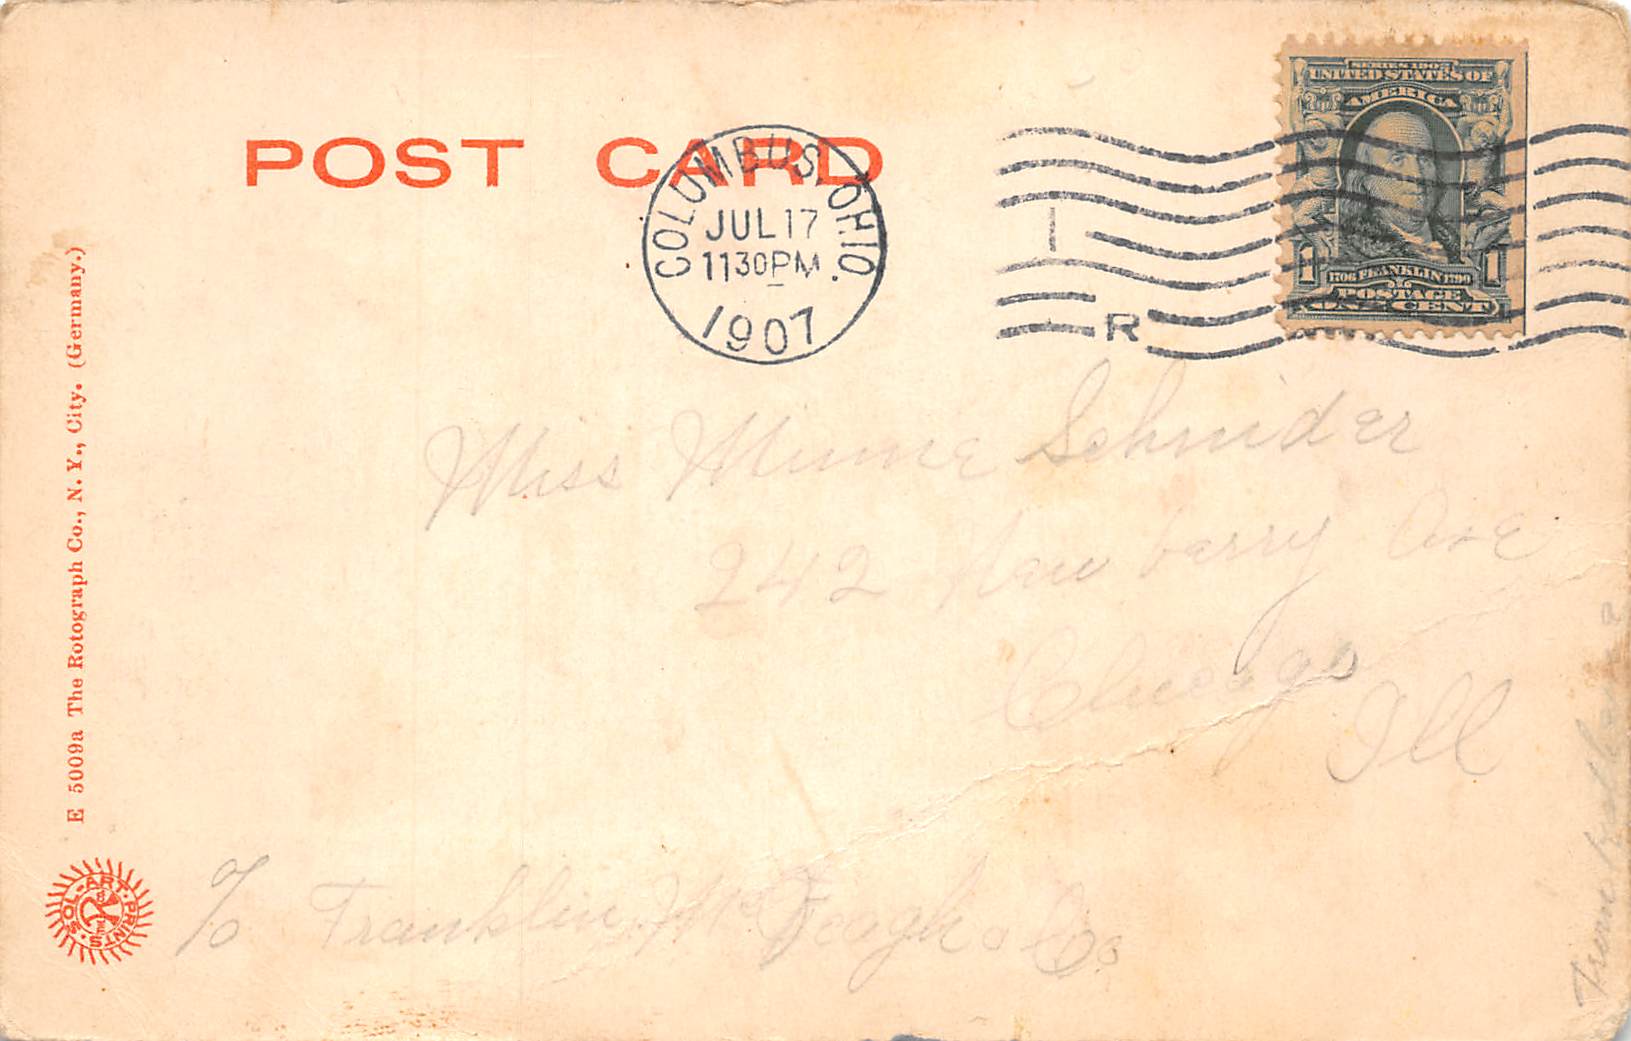 POST CARD
COLUMBUS, OHIO
JUL 17
1130PM
1907
R
SERIES 1902
UNITED STATES OF
AMERICA
1 1
1706 FRANKLIN 1790
POSTAGE
ONE CENT
Miss Minnie Schnider
242 New barry Ave
Chicago
Ill
c/o Franklin Mc & Co
E 5009a The Rotograph Co., N. Y., City. (Germany.)
SOL-ART PRINTS